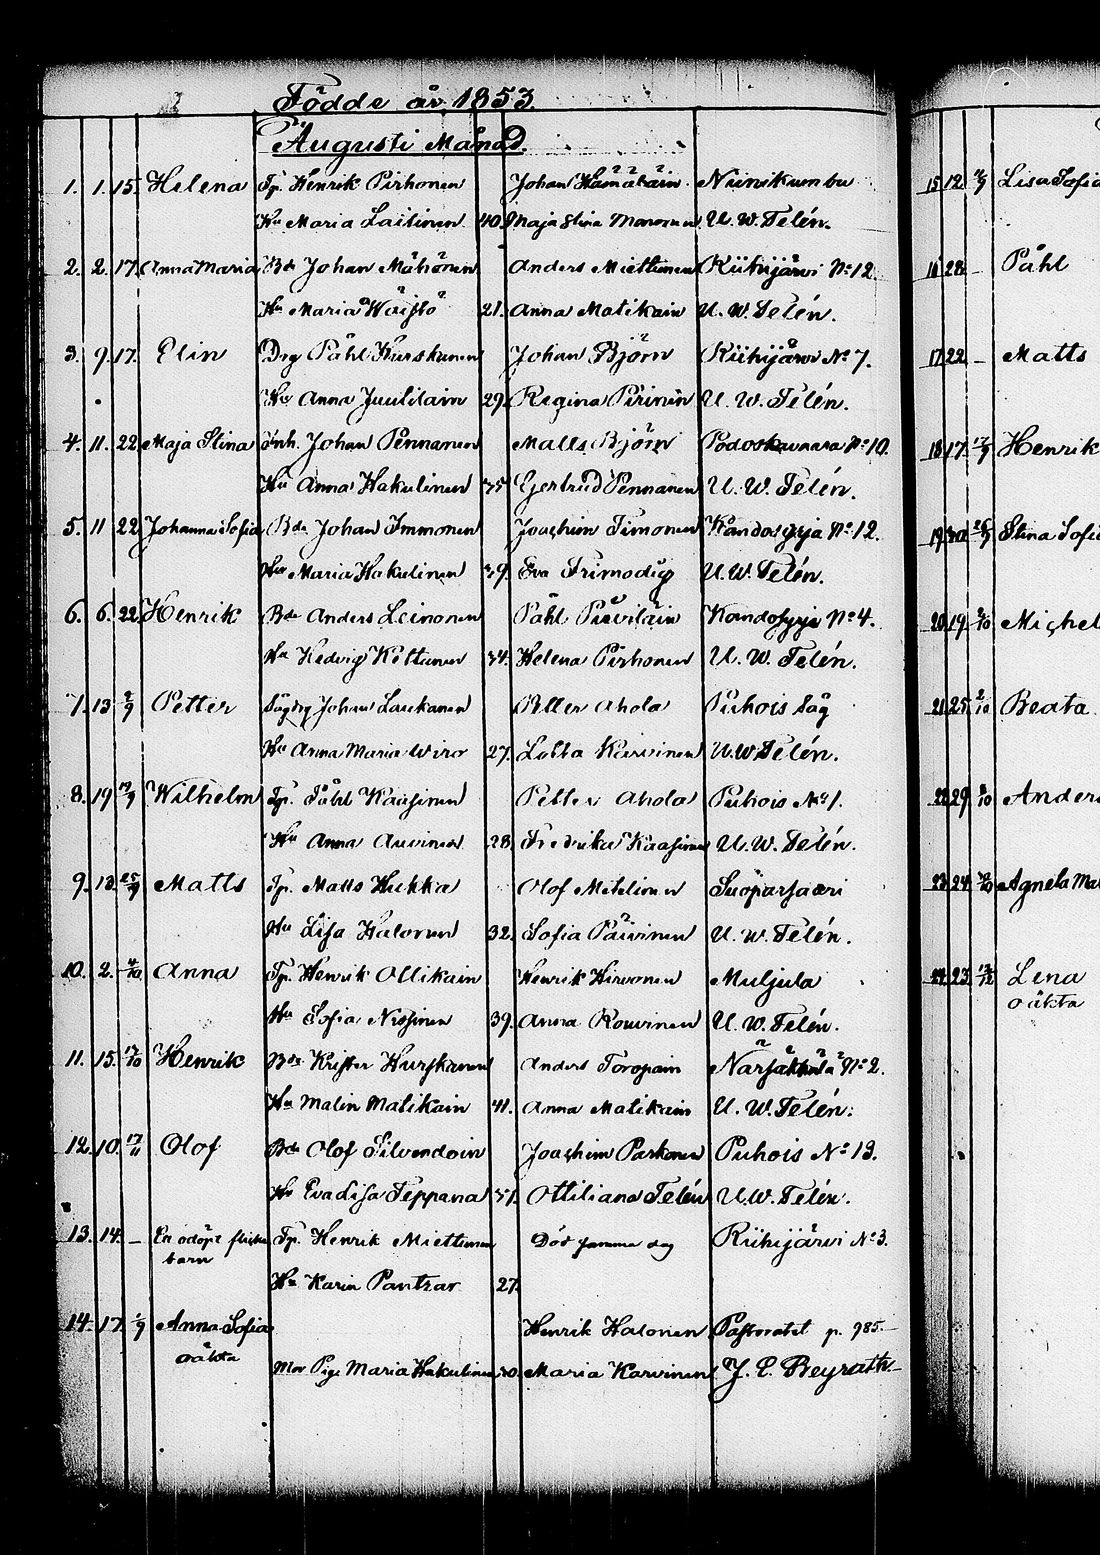 Födde år 1853.
Augusti Månad.
1. 1. 15. Helena Tp. Henrik Pirhonen Johan Hämäläin Niinikumbu
Hu Maria Laitinen 40. Maja Stina Mononen U. W. Telén.
2. 2. 17. Anna Maria Bde Johan Mähönen Anders Miettinen Riihijärvi No 12.
Hu Maria Wäistö 21. Anna Matikain U. W. Telén.
3. 9. 17. Elin Drg Påhl Hurskanen Johan Björn Riihijärvi No 7.
Hu Anna Juutilain 29. Regina Pirinin U. W. Telén.
4. 11. 22 Maja Stina Inh. Johan Pennanen Matts Björn Podoskavaara No 10.
Hu Anna Hakulinen 35 Gjertrud Pennanen U. W. Telén.
5. 11 22 Johanna Sofia Bde Johan Immonen Joachim Timonen Kandosyrja No 12.
Hu Maria Hakulinen 39. Eva Frimodig U. W. Telén.
6. 6. 22 Henrik Bde Anders Leinonen Påhl Päiviläin Kandosyrja No 4.
Hu Hedvig Kettunen 34. Helena Pirhonen U. W. Telén.
7. 13 2/9 Petter Sågdrg Johan Laukanen Petter Ahola Puhois Såg
Hu Anna Maria Wiro 27. Lotta Karvinen U. W. Telén.
8. 19 12/9 Wilhelm Tp. Påhl Kaasinen Petter Ahola Puhois No 1.
Hu Anna Auvinen 28. Fredrika Kaasinen U. W. Telén.
9. 18. 25/9 Matts Tp. Matts Hukka Olof Mehlinen Suoparsaari
Hu Lisa Halonen 32. Sofia Päivinen U. W. Telén.
10. 2. 4/10 Anna Tp. Henrik Ollikain Henrik Hirvonen Muljula
Hu Sofia Nissinen 39. Anna Rouvinen U. W. Telén.
11. 15. 17/10 Henrik Bde Krister Hurskanen Anders Toropain Närsäkkälä No 2.
Hu Malin Matikain 41. Anna Matikain U. W. Telén.
12. 10. 17/11 Olof Bde Olof Silvendoin Joachim Parkonen Puhois No 13.
Hu Eva Lisa Teppana 31. Ottiliana Telén U. W. Telén.
13. 14. – En odöpt flicko Tp. Henrik Miettinen Död samma dag Riihijärvi No 3.
barn
Hu Karin Pantzar 27.
14. 17. 1/9 Anna Sofia Henrik Halonen Pastoratet p. 985.
oäkta
Mor Pig. Maria Hakulinen 30. Maria Karvinen J. E. Beyrath
15 12. Lisa Sofia
16 28. – Påhl
17 22. – Matts
18 17. Henrik
19 Stina Sofia
20 19. Michel
21 25. Beata
22 29. Anders
23 24. Agneta
24 23. Lena
oäkta